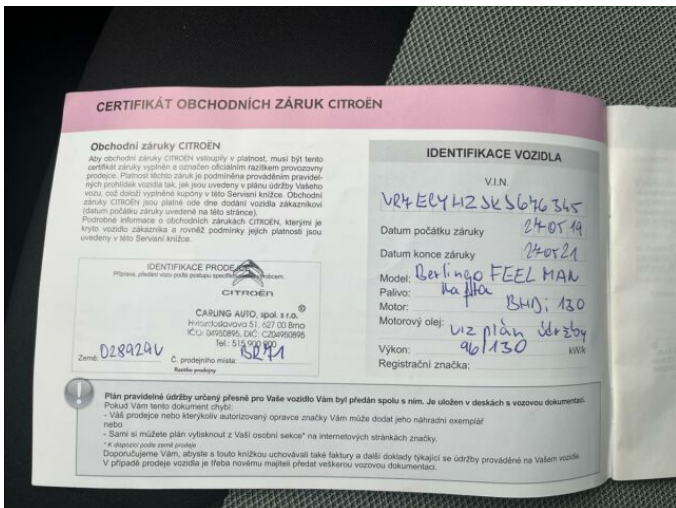 CERTIFIKÁT OBCHODNÍCH ZÁRUK CITROËN
Obchodní záruky CITROËN
Aby obchodní záruky CITROËN vstoupily v platnost, musí být tento
certifikát záruky vyplněn a označen oficiálním razítkem provozovny
prodejce. Platnost těchto záruk je podmíněna prováděním pravidel-
ných prohlídek vozidla tak, jak jsou uvedeny v plánu údržby Vašeho
vozu, což doloží vyplněné kupóny v této Servisní knížce. Obchodní
záruky CITROËN jsou platné ode dne dodání vozidla zákazníkovi
(datum počátku záruky uvedené na této stránce).
Podrobné informace o obchodních zárukách CITROËN, kterými je
kryto vozidlo zákazníka a rovněž podmínky jejich platnosti jsou
uvedeny v této Servisní knížce.
IDENTIFIKACE PRODEJCE
Příprava, předání vozu podle postupu výrobcem.
CITROËN
CARLING AUTO, spol. s r.o.
Hviezdoslavova 51, 627 00 Brno
IČO: 04950895, DIČ: CZ04950895
Tel.: 515 900 900
Země: D28929V Č. prodejního místa: BR71
Razítko prodejny
IDENTIFIKACE VOZIDLA
V.I.N.
Datum počátku záruky 240519
Datum konce záruky 240521
Model: Berlingo FEEL MAN
Palivo: Nafta
Motor: BHDi 130
Motorový olej: viz plán údržby
Výkon: 96/130 kW/k
Registrační značka:
Plán pravidelné údržby určený přesně pro Vaše vozidlo Vám byl předán spolu s ním. Je uložen v deskách s vozovou dokumentací.
Pokud Vám tento dokument chybí:
- Váš prodejce nebo kterýkoliv autorizovaný opravce značky Vám může dodat jeho náhradní exemplář
nebo
- Sami si můžete plán vytisknout z Vaší osobní sekce* na internetových stránkách značky.
* K dispozici podle země prodeje
Doporučujeme Vám, abyste s touto knížkou uchovávali také faktury a další doklady týkající se údržby prováděné na Vašem vozidle.
V případě prodeje vozidla je třeba novému majiteli předat veškerou vozovou dokumentaci.